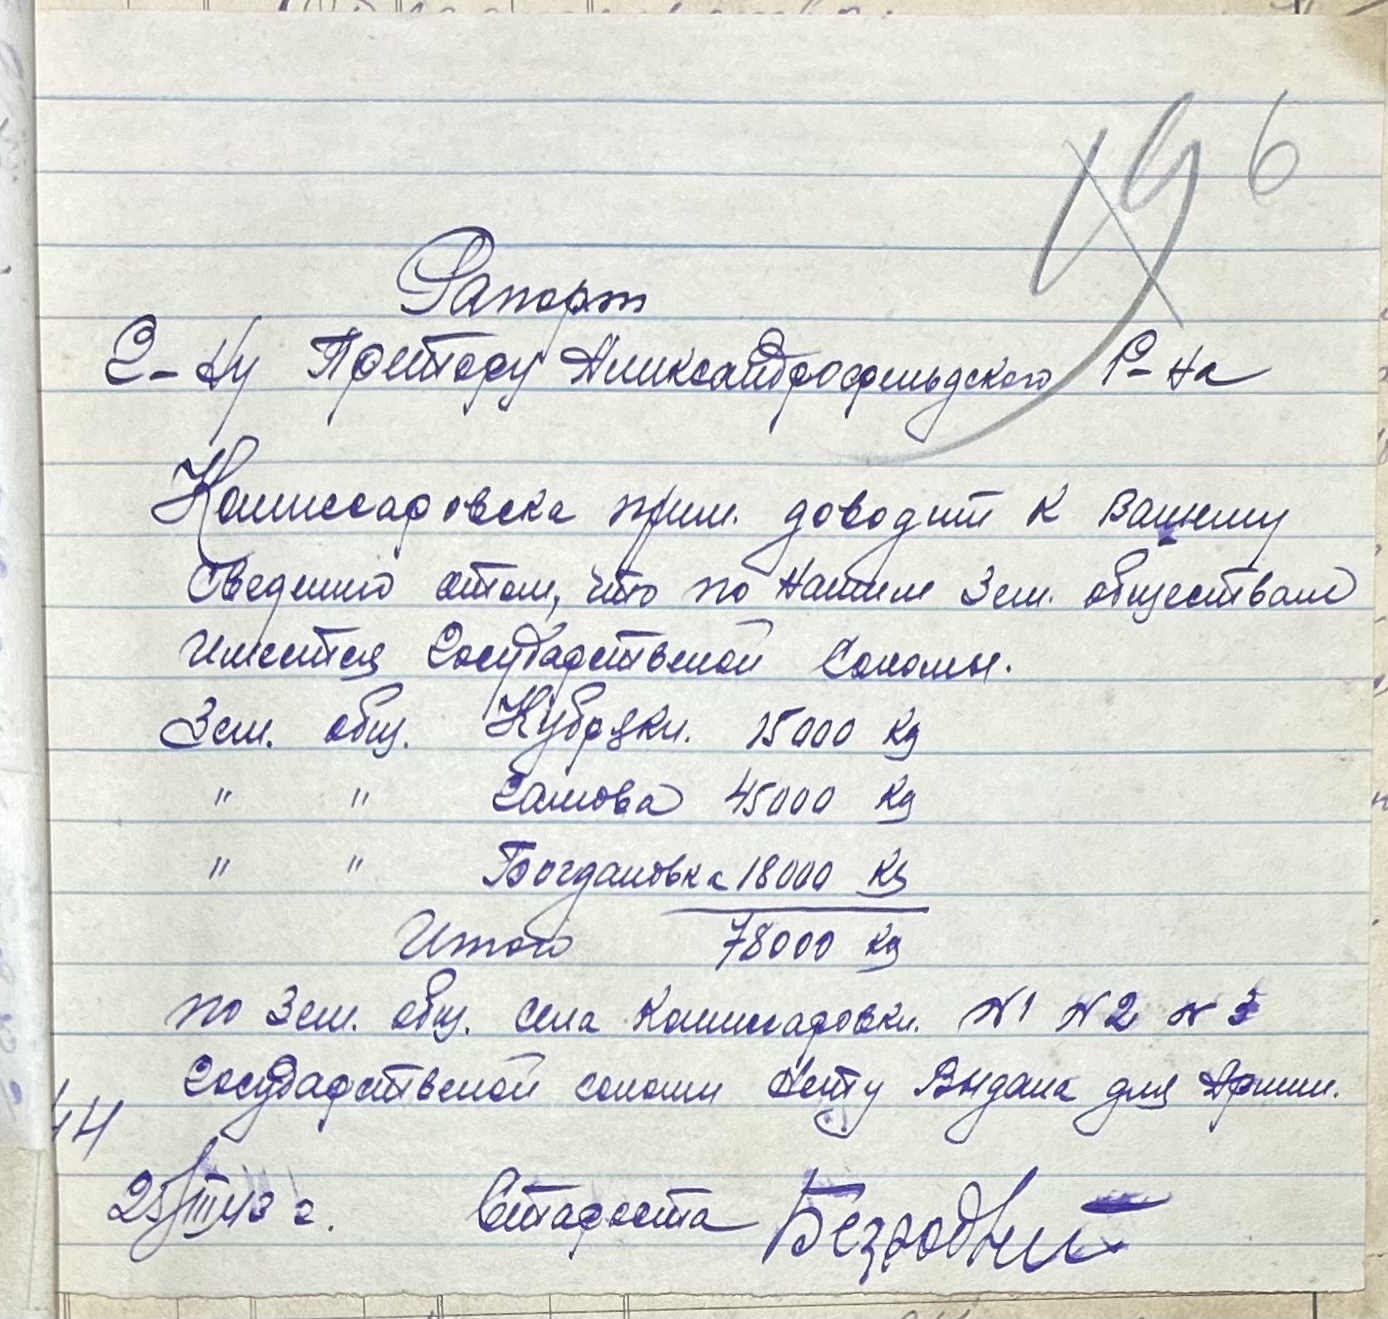 196
Рапорт
Г-ну Претору Александрофельдского Р-на
Комиссаровска прим. доводит к Вашему
Сведению отом, что по Нашим Зем. обществам
Имеется Государственой Соломы.
Зем. общ. Кубряки. 15000 кg
" " Самова 45000 кg
" " Богдановка 18000 кg
Итого 78000 кg
по Зем. общ. села Комиссаровки. №1 №2 №3
Государственой соломи Нету Выдана для Армии.
44
25/III 43 г. Староста Безродний